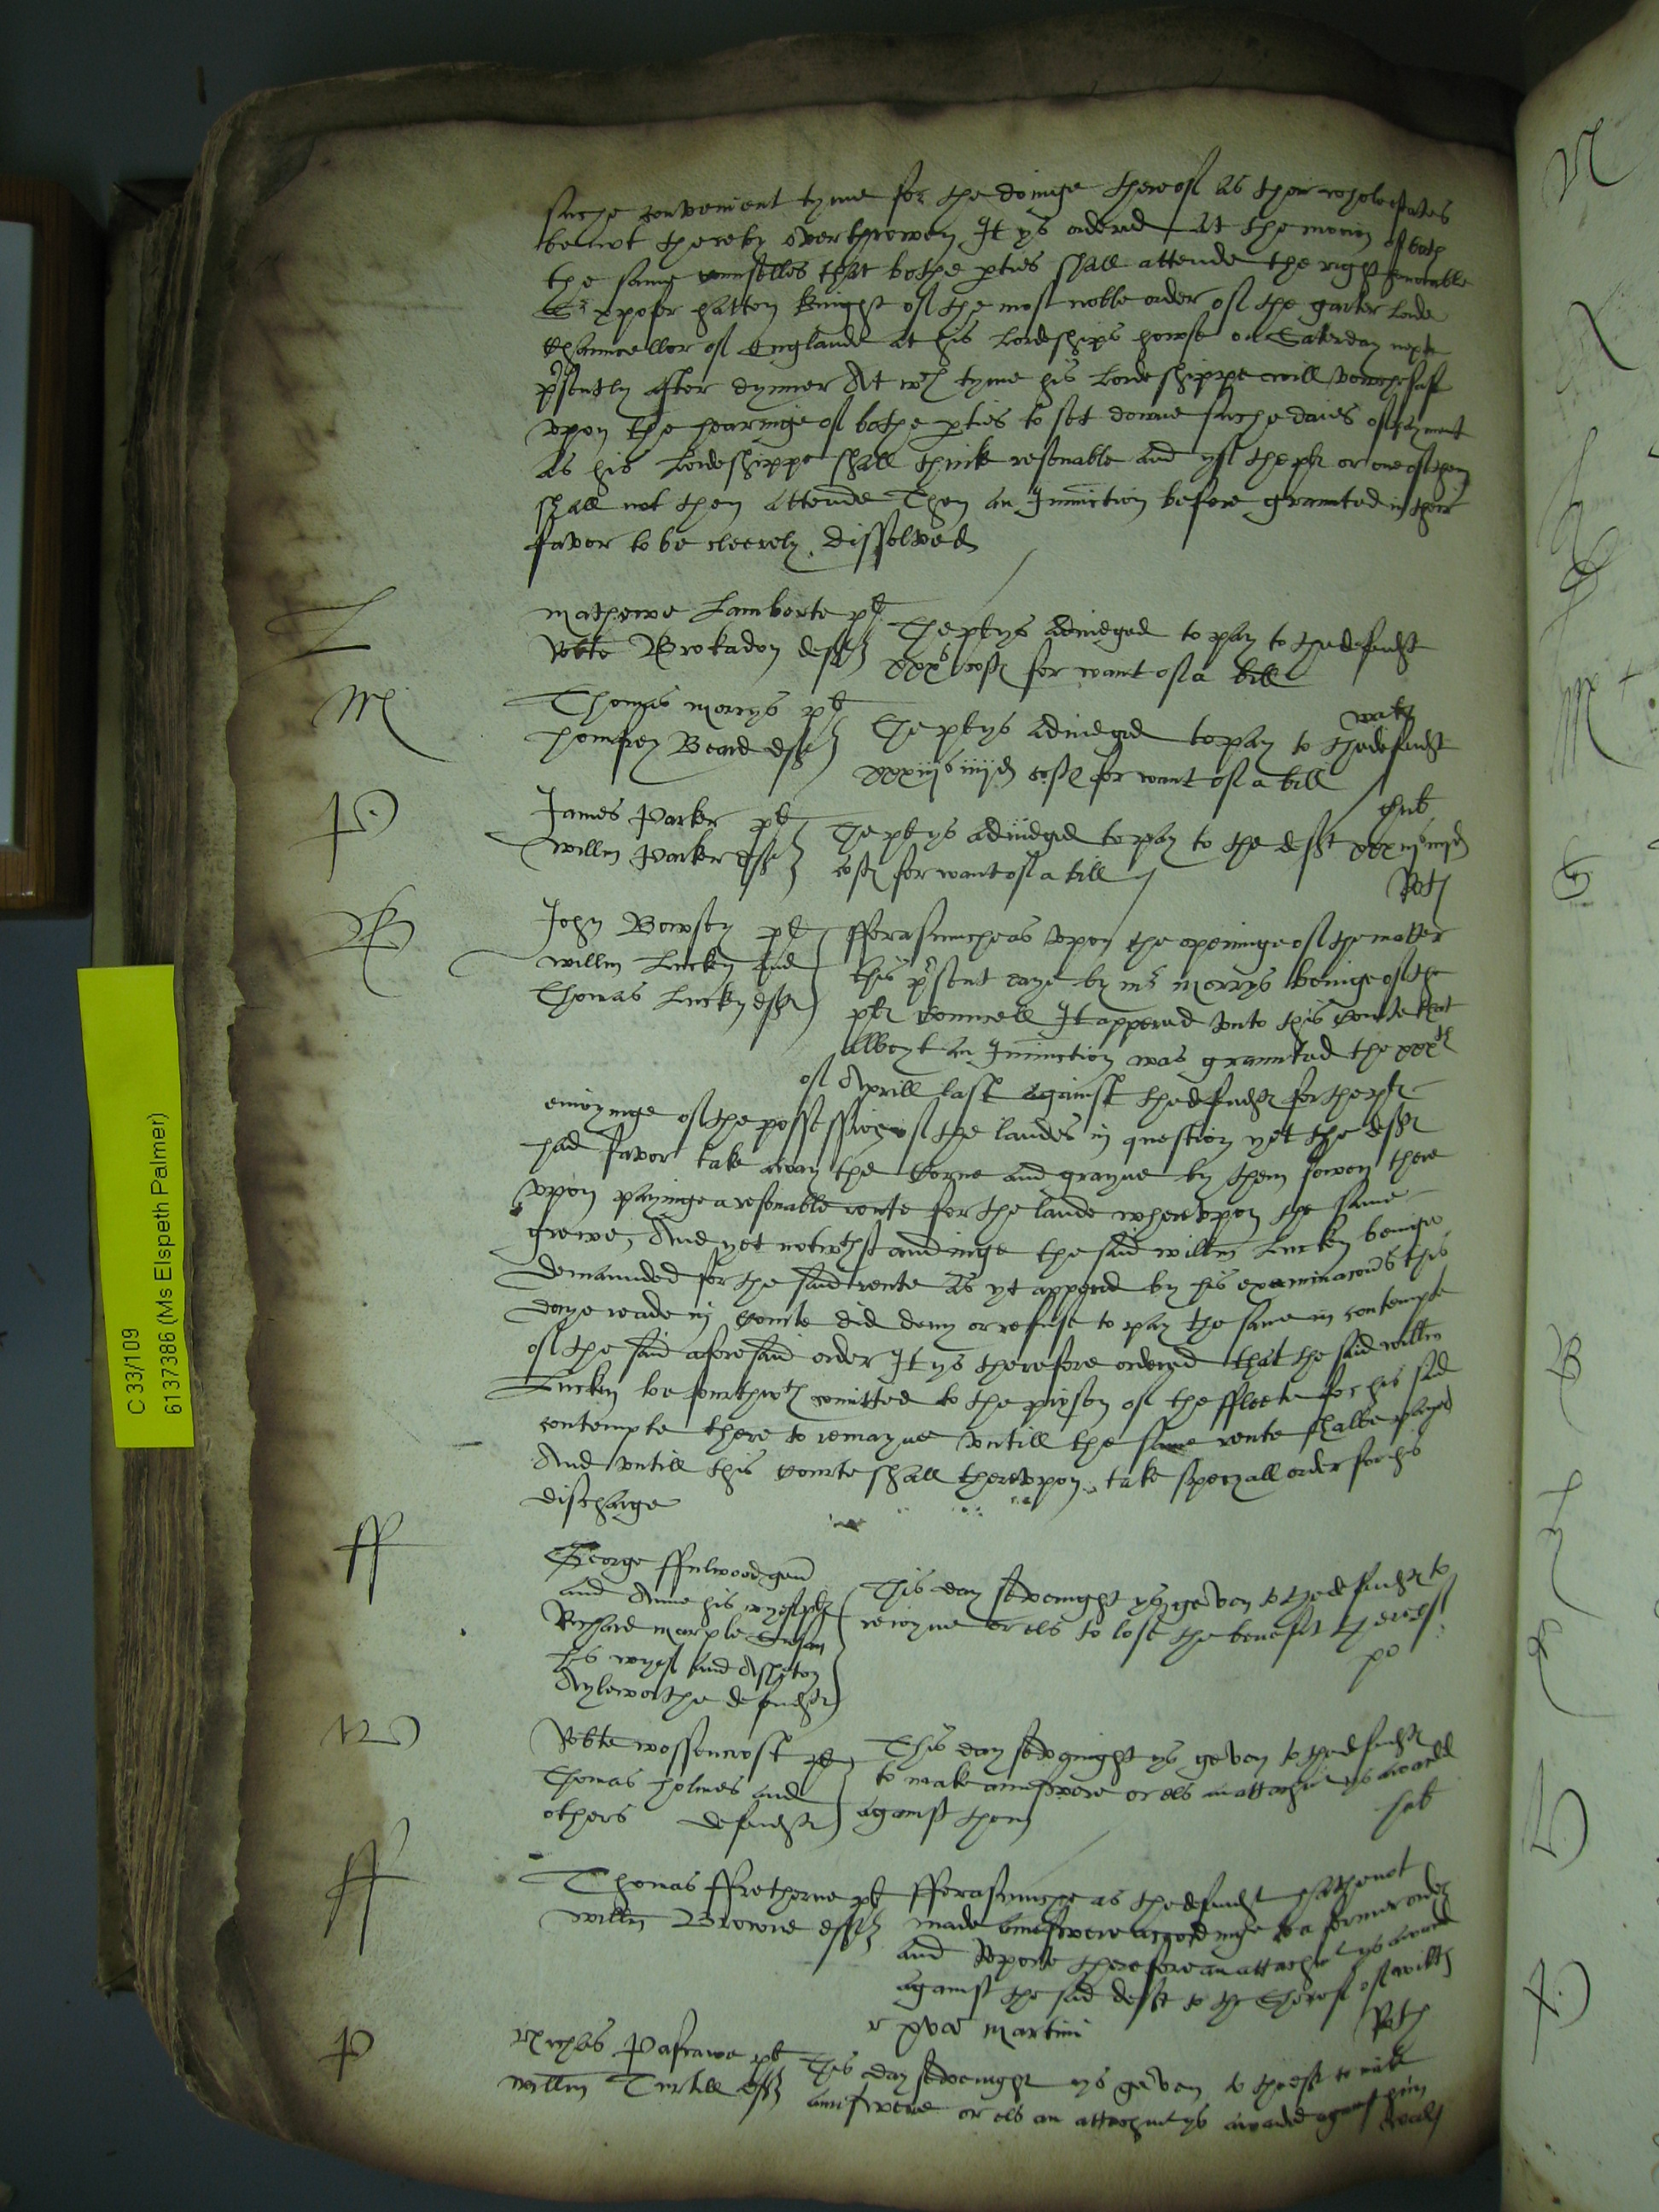 suche convenient tyme for the doinge thereof as their whole estates
be not thereby overthrowen It ys ordered at the mocion of both
the same counselles that bothe pties shall attende the right honorable
Sr xpofer hatton knight of the most noble order of the garter lorde
Chauncellor of Englande at his Lordeships howse on Saterday next
psently after dynner At wch tyme his Lordeshippe will vouchesaf
vpon the hearinge of bothe pties to set downe suche daies of payment
as his Lordeshippe shall think resonable and yf the plt or one of them
shall not then attende Then an Iniunction before graunted in their
favor to be cleerely dissolved
L
Mathewe Lamberte plt
Robte Brokadon deft
The plt ys adiudged to pay to the defendt
xxxs cost for want of a bill
M
Thomas Morrys plt
homfrey Beard deft
The plt ys adiudged to pay to the defendt
xxxiijs iiijd cost for want of a bill
P
James Parker plt
Willm Parker deft
The plt ys adiudged to pay to the deft xxxiijs iiijd
cost for want of a bill
B
John Bowsey plt
Willm Lucken and
Thomas Lucken defts
fforasmuche as vpon the openinge of the matter
this psent daye by mr Morrys beinge of the
plt councell It appered vnto this Courte that
albeyt an Iniunction was graunted the xxxth
of Aprill last against the defendts for the plts
enioyinge of the possession of the landes in question yet the defts
had favor take away the corne and grayne by them sowen there
vpon payinge a resonable rente for the lande wherevpon the same
grewe, And yet notwthstandinge the said Willm Lucken beinge
demaunded for the said rente as yt appered by his examinacons this
daye reade in courte did deny or refuse to pay the same in contempte
of the said aforesaid order It ys therefore ordered that the said Willm
Lucken be fourthwth comitted to the prison of the ffleete for his said
contempte there to remayne vntill the same rente shalbe payed
And vntill this courte shall therevpon take speciall order for his
discharge
ff
George ffulwood gen
and Anne his wyef plts
Richard Marple Susan
his wyef and Assheton
Ayleworthe defendts
This day sevenight ys geven to the defendts to
reioyne or els to lose the benefit thereof
po
W
Robte Wossencroft plt
Thomas Holmes and
others defendts
This day sevenight ys geven to the defendts
to make aunswere or els an attachmt ys award
against them
ff
Thomas ffretherne plt
Willm Browne deft
fforasmuche as the defendt hathe not
made aunswere accordinge to a former order
and Reporte therefore an attachmt ys award
against the said deft to the Sheref of Wilts
r xvna Martini
P
Nichas Pastrawe plt
Willm Turtill deft
This day sevenight ys geven to the deft to make
aunswere or els an attachmt ys awarded against him